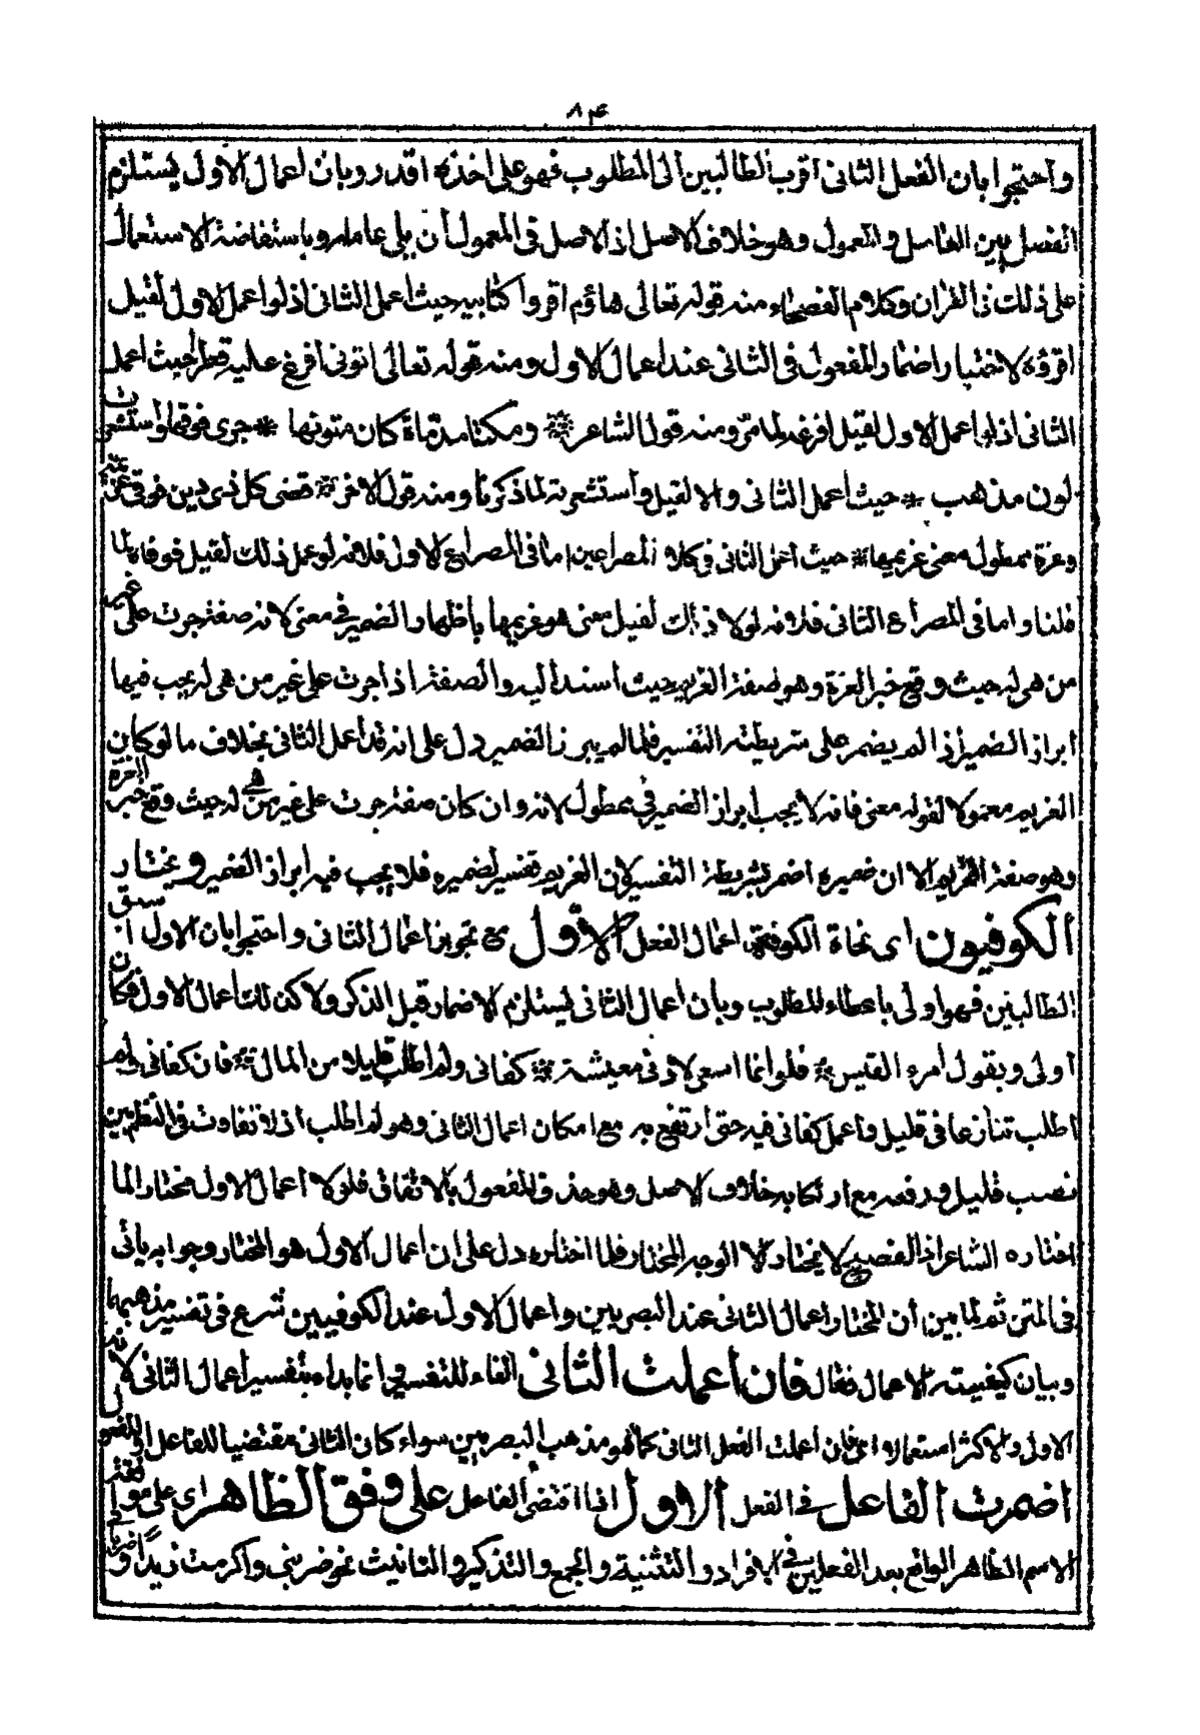 ۸۴
واحتجوا بان الفعل الثانى اقرب الطالبين الى المطلوب فهو على اخذه اقدر وبان اعمال الاول يستلزم
الفصل بين العامل والمعمول وهو خلاف الاصل اذ الاصل فى المعمول ان يلى عامله وباستفاضة الاستعمال
على ذلك فى القران وكلام الفصحاء منه قوله تعالى هاؤم اقروا كتابيه حيث اعمل الثانى اذ لو اعمل الاول لقيل
اقرؤه لاختيار اضمار المفعول فى الثانى عند اعمال الاول ومنه قوله تعالى اتونى افرغ عليه قطرا حيث اعمل
الثانى اذ لو اعمل الاول لقيل افرغه لما مر ومنه قول الشاعر ومكتا مدماة كان متونها جرى فوقها واستشعرت
لون مذهب حيث اعمل الثانى والا لقيل واستشعرته لما ذكرنا ومنه قول الاخر قضى كل ذى دين فوفى غريمه
وعزة ممطول معنى غريمها حيث اعمل الثانى فى كلا المصراعين اما فى المصراع الاول فلانه لو عمل ذلك لقيل فوفاه لما
قلنا واما فى المصراع الثانى فلانه لولا ذلك لقيل معنى هو غريمها باظهار الضمير فى معنى لانه صفة جرت على غير
من هى له حيث وقع خبر العزة وهو صفة الغريم حيث اسند اليه والصفة اذا جرت على غير من هى له يجب فيها
ابراز الضمير اذا لم يضمر على شريطة التفسير فلما لم يبرز الضمير دل على انه قد اعمل الثانى بخلاف ما لو كان
الغريم معمولا لقوله معنى فانه لا يجب ابراز الضمير فى ممطول لانه وان كان صفة جرت على غير من هى له حيث وقع خبر العزة
وهو صفة الغريم الا ان ضميره اضمر بشريطة التفسير لان الغريم تفسير لضميره فلا يجب فيه ابراز الضمير ويختار
الكوفيون اى نحاة الكوفة اعمال الفعل الاول مع تجويز اعمال الثانى واحتجوا بان الاول اسبق
الطالبين فهو اولى باعطاء المطلوب وبان اعمال الثانى يستلزم الاضمار قبل الذكر ولا كذلك اعمال الاول فكان
اولى وبقول امرء القيس فلو انما اسعى لادنى معيشة كفانى ولم اطلب قليلا من المال فان كفانى ولم
اطلب تنازعا فى قليل واعمل كفانى فيه حتى ارتفع به مع امكان اعمال الثانى وهو لم اطلب اذ لا تفاوت فى النظم بين
نصب قليل ورفعه مع ارتكابه خلاف الاصل وهو حذف المفعول بالاتفاق فلولا اعمال الاول مختار لما
اختاره الشاعر اذ الفصيح لا يختار الا الوجه المختار فلما اختاره دل على ان اعمال الاول هو المختار وجوابه ياتى
فى المتن ثم لما بين ان المختار اعمال الثانى عند البصريين واعمال الاول عند الكوفيين شرع فى تفسير مذهبهما
وبيان كيفية الاعمال فقال فان اعملت الثانى الفاء للتفسير وانما بداء بتفسير اعمال الثانى لانه
الاولى والاكثر استعمالا اى فان اعملت الفعل الثانى كما هو مذهب البصريين سواء كان الثانى مقتضيا للفاعل او المفعول
اضمرت الفاعل فى الفعل الاول اذا اقتضى الفاعل على وفق الظاهر اى على موافقة
الاسم الظاهر الواقع بعد الفعلين فى الافراد والتثنية والجمع والتذكير والتانيث نحو ضربنى واكرمت زيدا